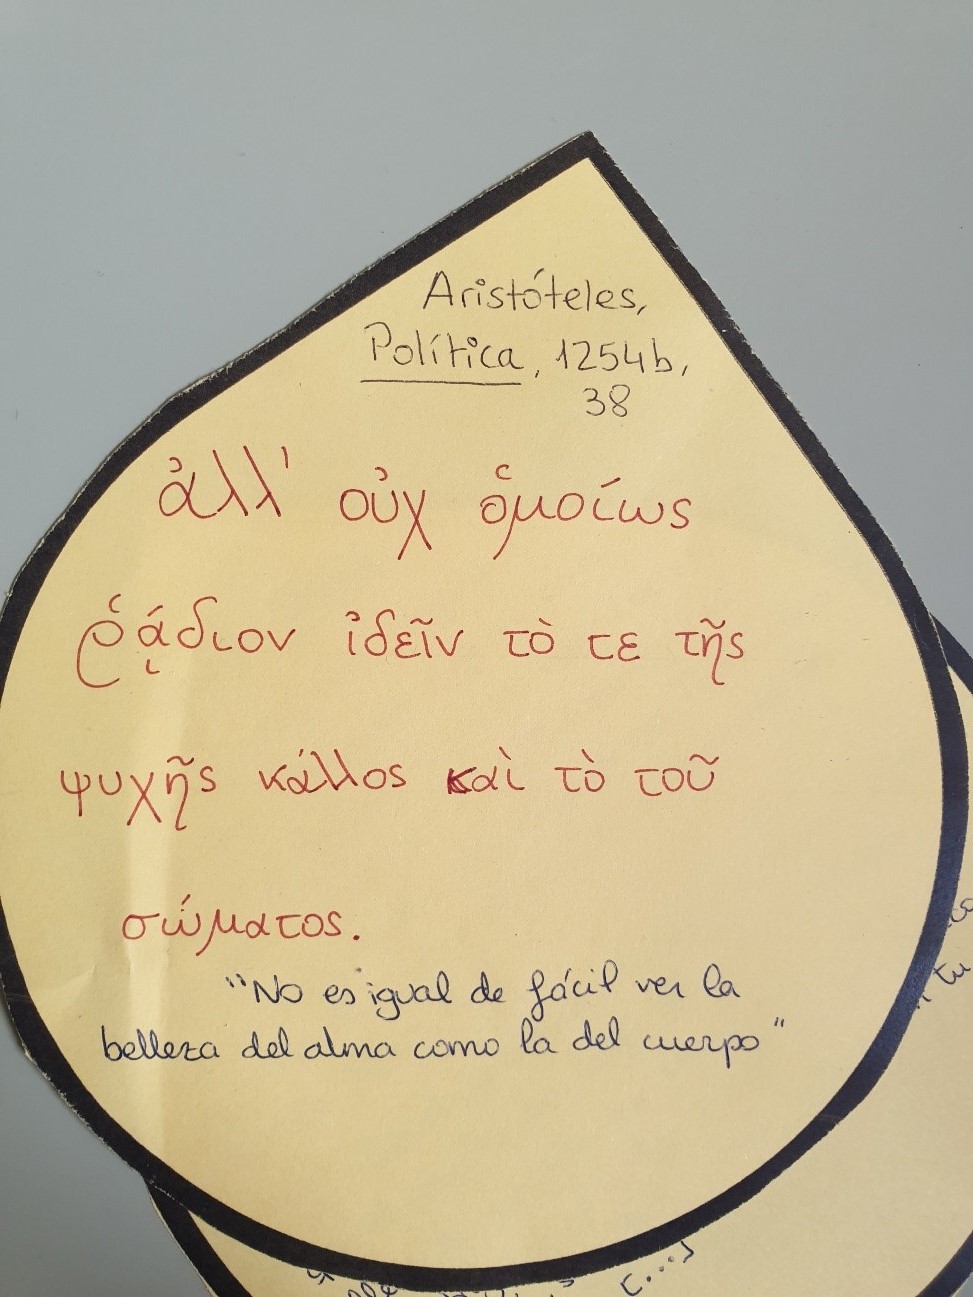 Aristóteles,
Política, 1254b,
38
ἀλλ' οὐχ ὁμοίως
ῥᾴδιον ἰδεῖν τὸ τε τῆς
ψυχῆς κάλλος καὶ τὸ τοῦ
σώματος.
"No es igual de fácil ver la
belleza del alma como la del cuerpo"
tu
(...)